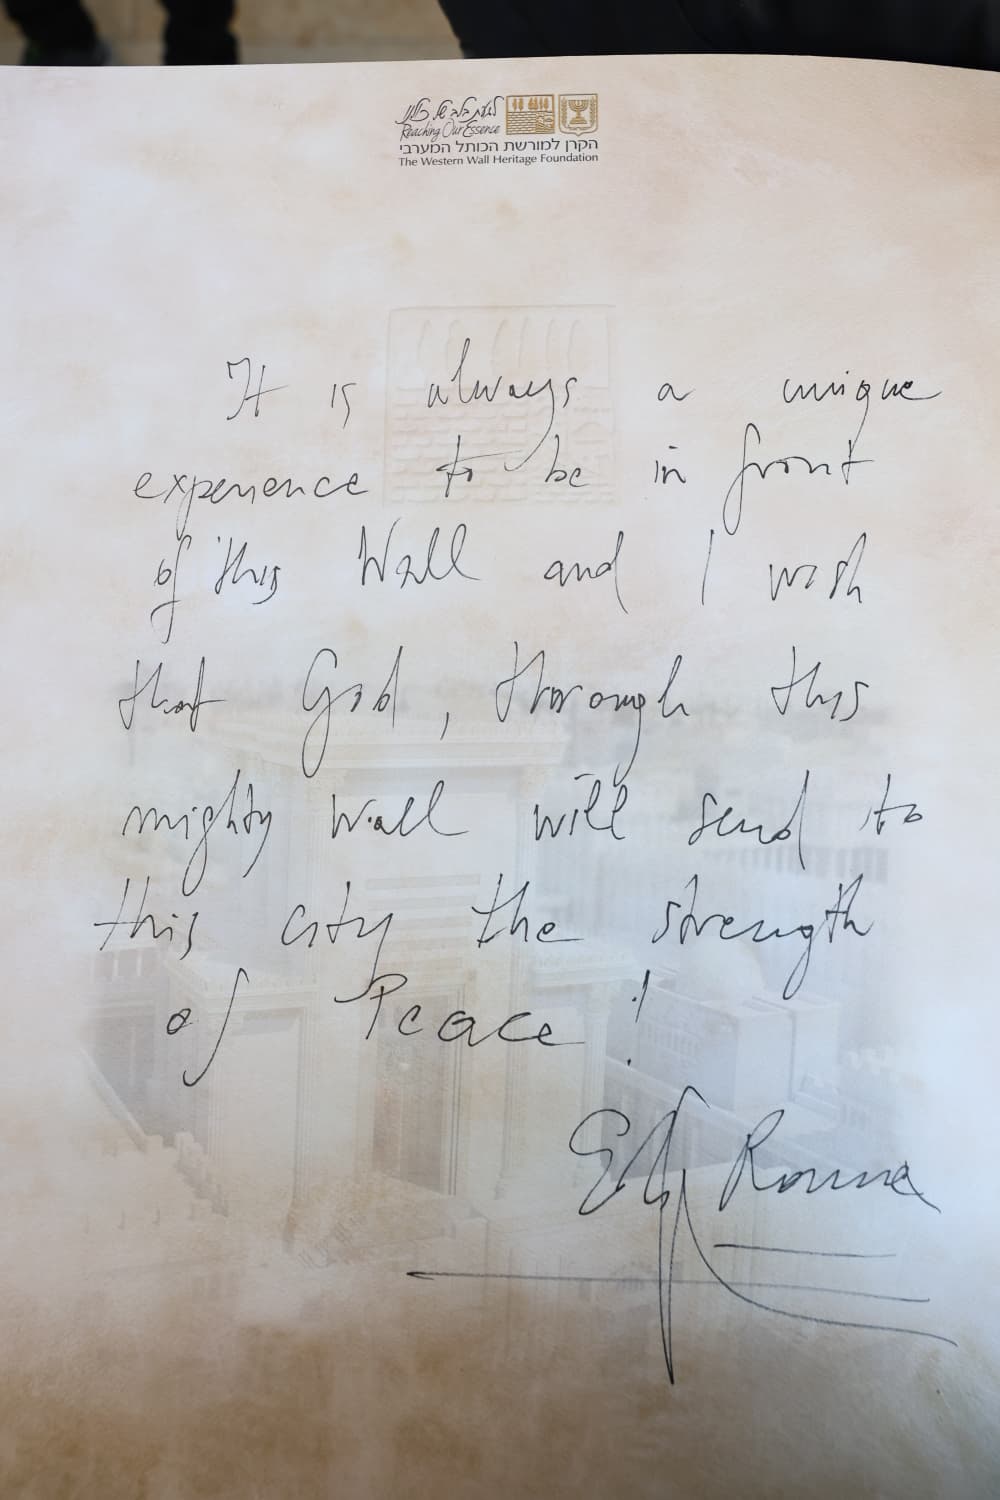 לגעת בלב של כולנו
Reaching Our Essence
הקרן למורשת הכותל המערבי
The Western Wall Heritage Foundation
It is always a unique
experience to be in front
of this Wall and I wish
that God, through this
mighty wall will send to
this city the strength
of Peace!